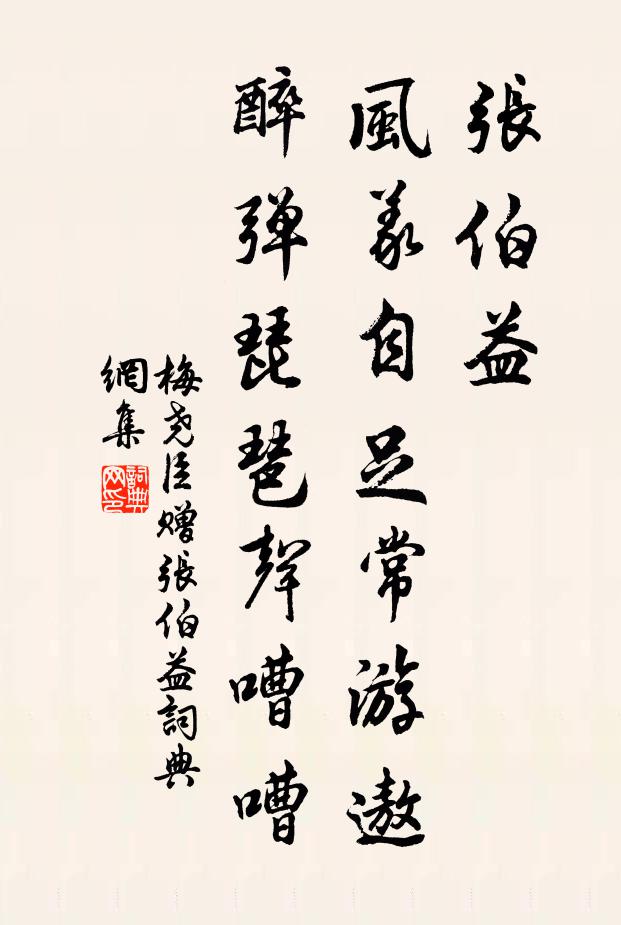 張伯益
風義自足常游遨
醉弹琵琶聲嘈嘈
梅尧臣赠張伯益詞典
網集
詞典网印